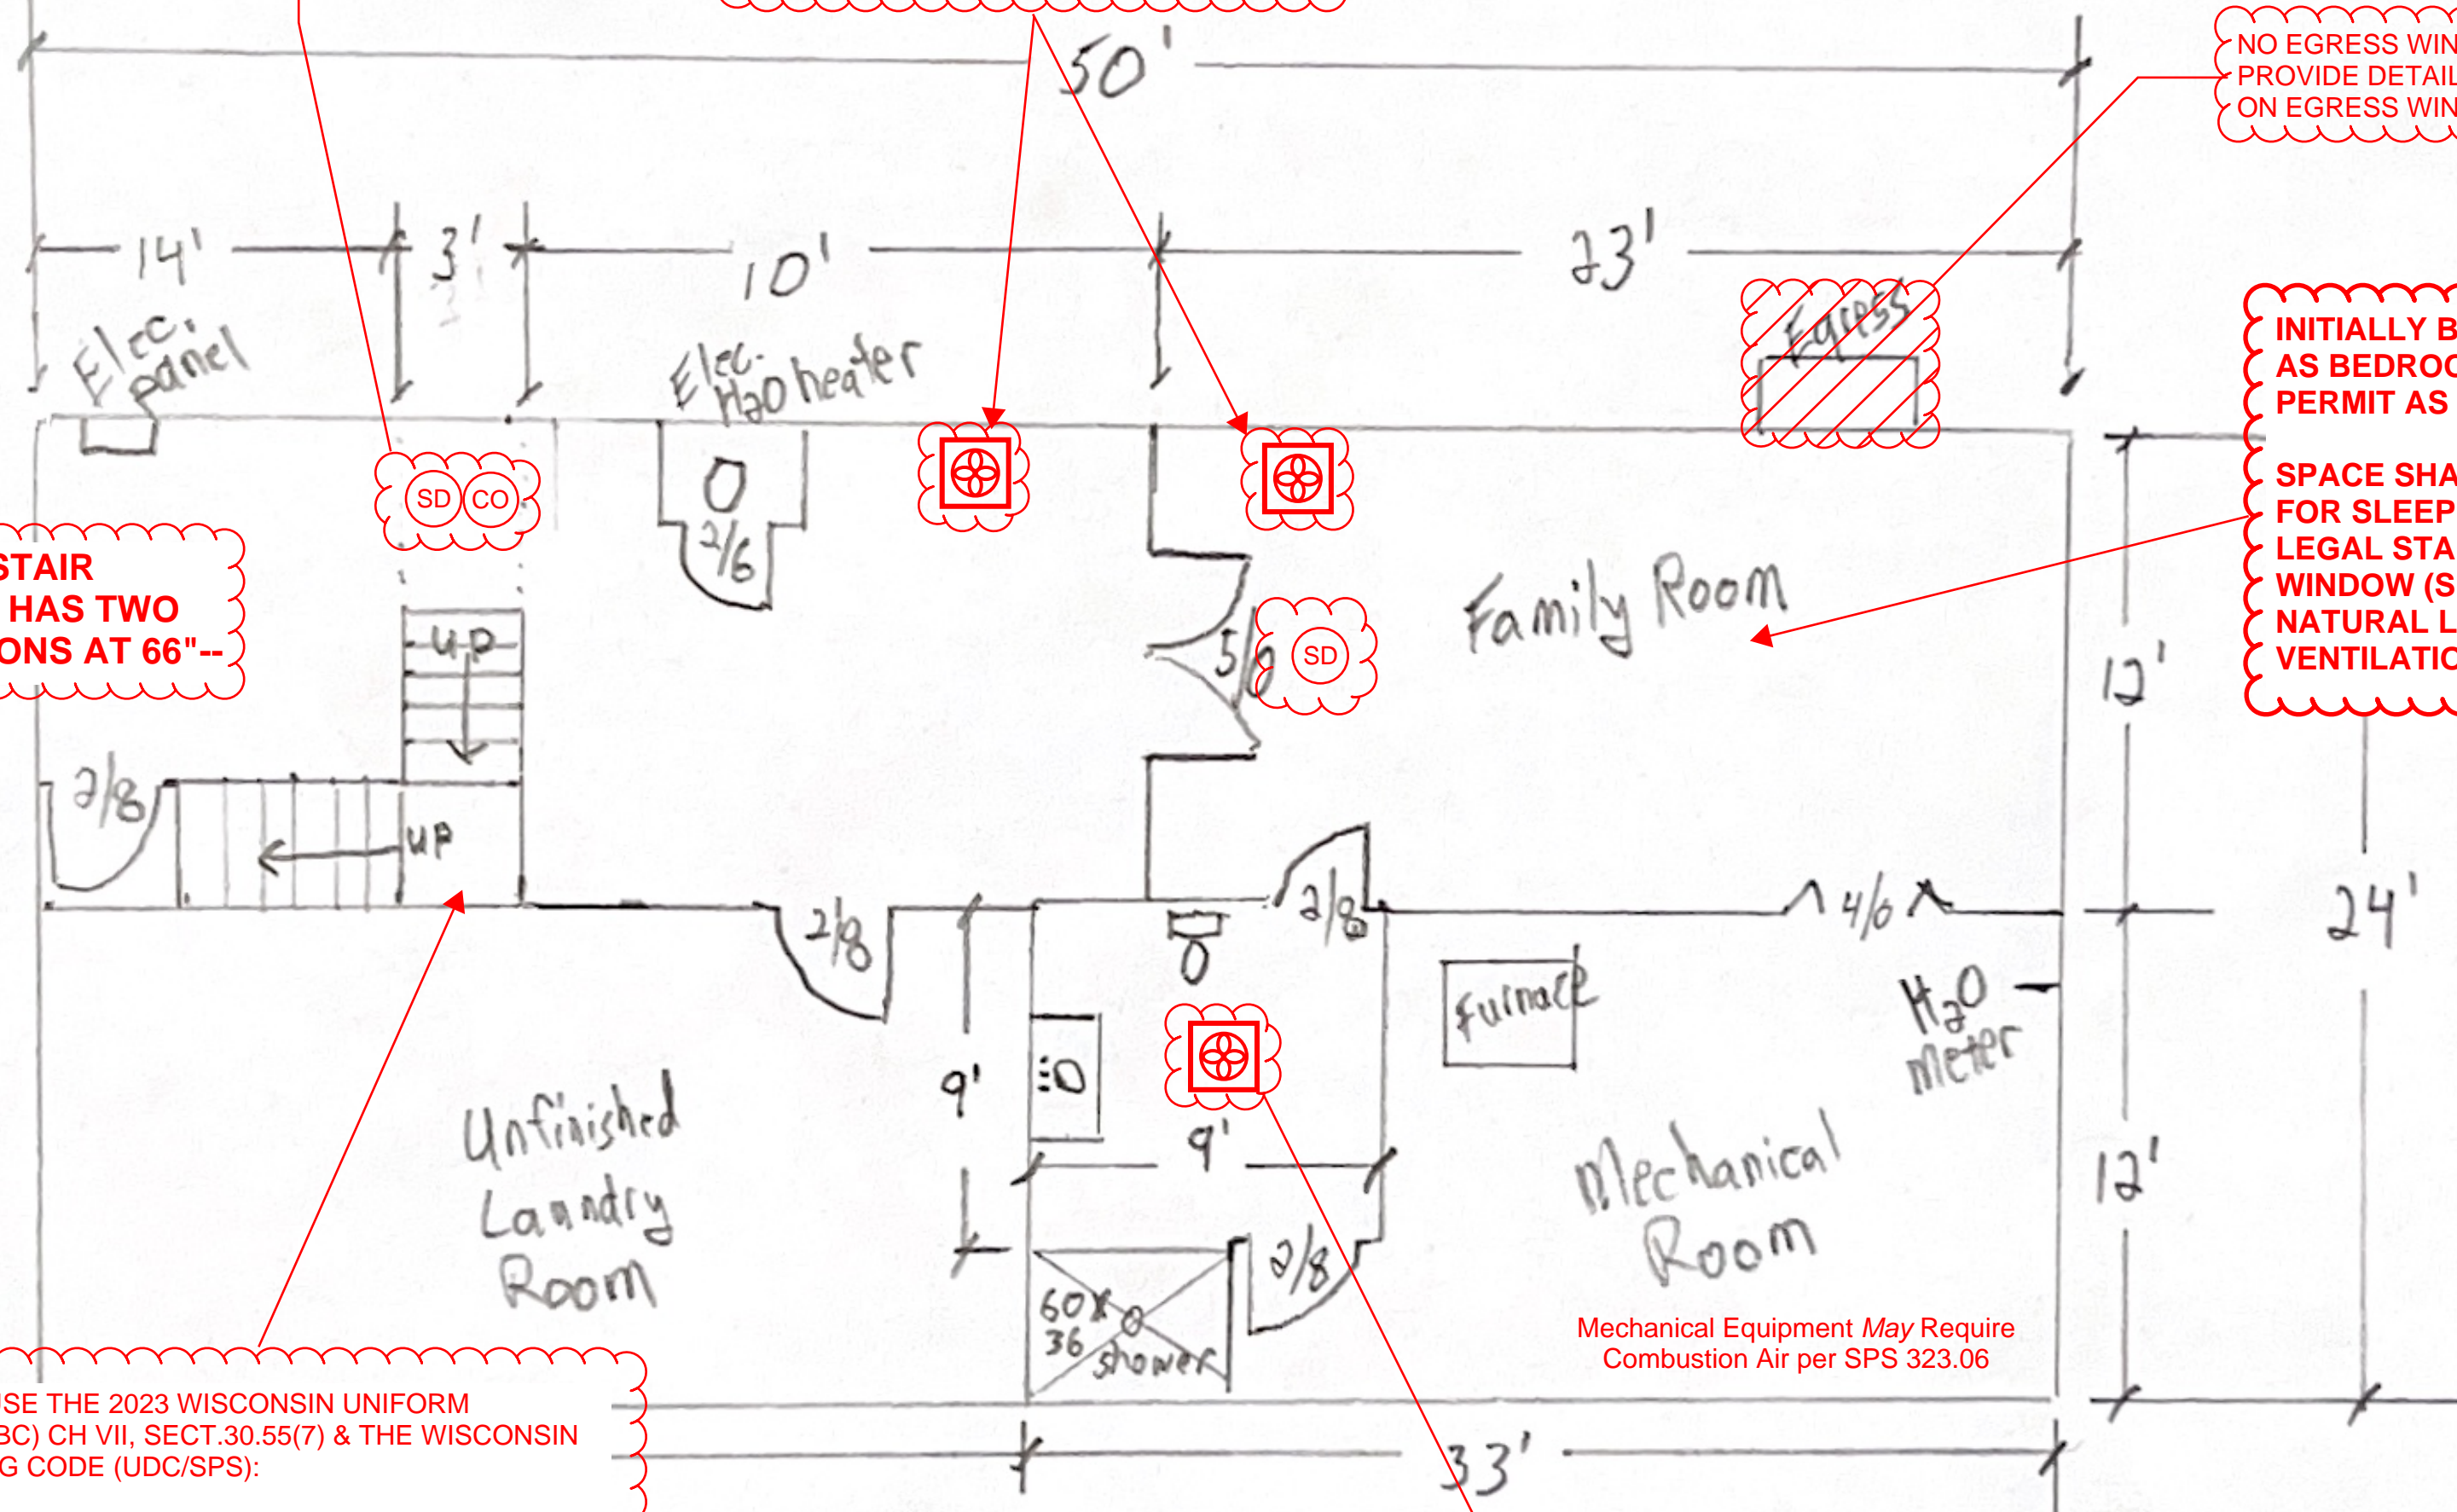 50'
NO EGRESS WIN
PROVIDE DETAIL
ON EGRESS WIN
14'
3'
10'
23'
Elec.
panel
Elec.
H2O heater
Egress
INITIALLY B
AS BEDROO
PERMIT AS
SPACE SHA
FOR SLEEP
LEGAL STA
WINDOW (S
NATURAL L
VENTILATIO
SD CO
2/6
STAIR
HAS TWO
ONS AT 66"--
UP
5/0
SD
Family Room
12'
2/8
UP
2/8
2/8
4/0
24'
Furnace
H2O
Meter
9'
9'
Unfinished
Laundry
Room
Mechanical
Room
12'
2/8
60x
36
shower
Mechanical Equipment May Require
Combustion Air per SPS 323.06
USE THE 2023 WISCONSIN UNIFORM
BC) CH VII, SECT.30.55(7) & THE WISCONSIN
G CODE (UDC/SPS):
33'